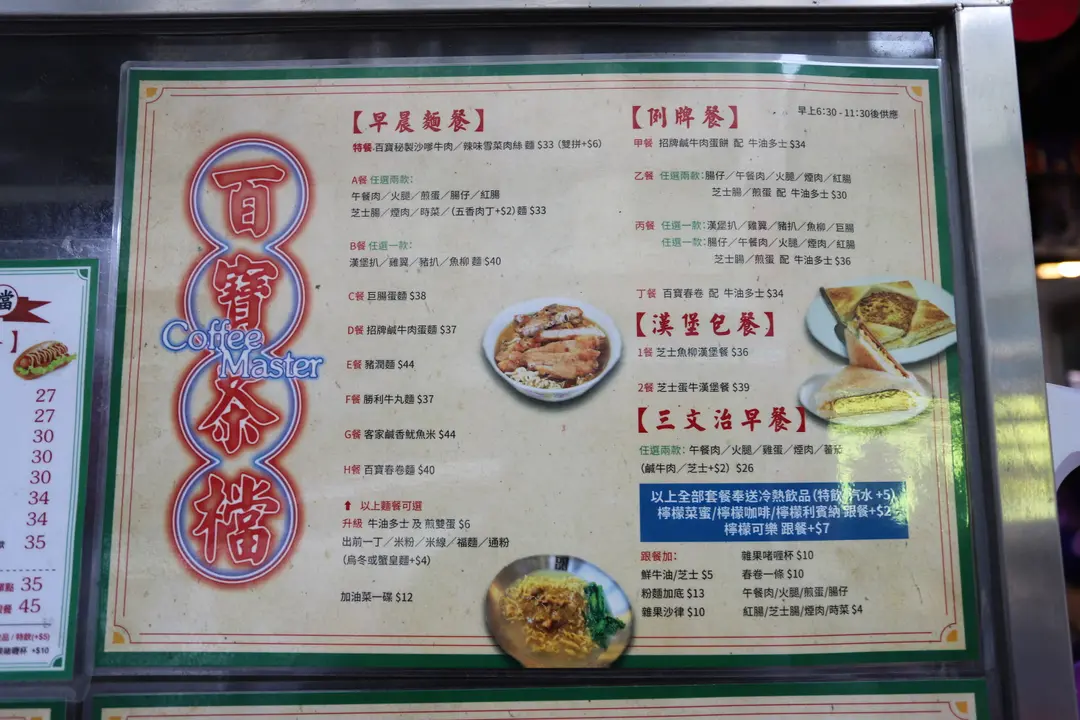 百寶茶檔
Coffee
Master
【早晨麵餐】
特餐 百寶秘製沙嗲牛肉／辣味雪菜肉絲 麵 $33 (雙拼+$6)
A餐 任選兩款：
午餐肉／火腿／煎蛋／腸仔／紅腸
芝士腸／煙肉／時菜／(五香肉丁+$2) 麵 $33
B餐 任選一款：
漢堡扒／雞翼／豬扒／魚柳 麵 $40
C餐 巨腸蛋麵 $38
D餐 招牌鹹牛肉蛋麵 $37
E餐 豬潤麵 $44
F餐 勝利牛丸麵 $37
G餐 客家鹹香魷魚米 $44
H餐 百寶春卷麵 $40
以上麵餐可選
升級 牛油多士 及 煎雙蛋 $6
出前一丁／米粉／米線／福麵／通粉
(烏冬或蟹皇麵+$4)
加油菜一碟 $12
【例牌餐】
早上6:30 - 11:30後供應
甲餐 招牌鹹牛肉蛋餅 配 牛油多士 $34
乙餐 任選兩款：腸仔／午餐肉／火腿／煙肉／紅腸
芝士腸／煎蛋 配 牛油多士 $30
丙餐 任選一款：漢堡扒／雞翼／豬扒／魚柳／巨腸
任選一款：腸仔／午餐肉／火腿／煙肉／紅腸
芝士腸／煎蛋 配 牛油多士 $36
丁餐 百寶春卷 配 牛油多士 $34
【漢堡包餐】
1餐 芝士魚柳漢堡餐 $36
2餐 芝士蛋牛漢堡餐 $39
【三文治早餐】
任選兩款：午餐肉／火腿／雞蛋／煙肉／蕃茄
(鹹牛肉／芝士+$2) $26
以上全部套餐奉送冷熱飲品 (特飲/汽水 +5)
檸檬菜蜜/檸檬咖啡/檸檬利賓納 跟餐+$2
檸檬可樂 跟餐+$7
跟餐加：
鮮牛油/芝士 $5
粉麵加底 $13
雜果沙律 $10
雜果啫喱杯 $10
春卷一條 $10
午餐肉/火腿/煎蛋/腸仔
紅腸/芝士腸/煙肉/時菜 $4
檔
】
27
27
30
30
30
34
34
35
35
餐 45
品 / 特飲(+$5)
杯 +$10